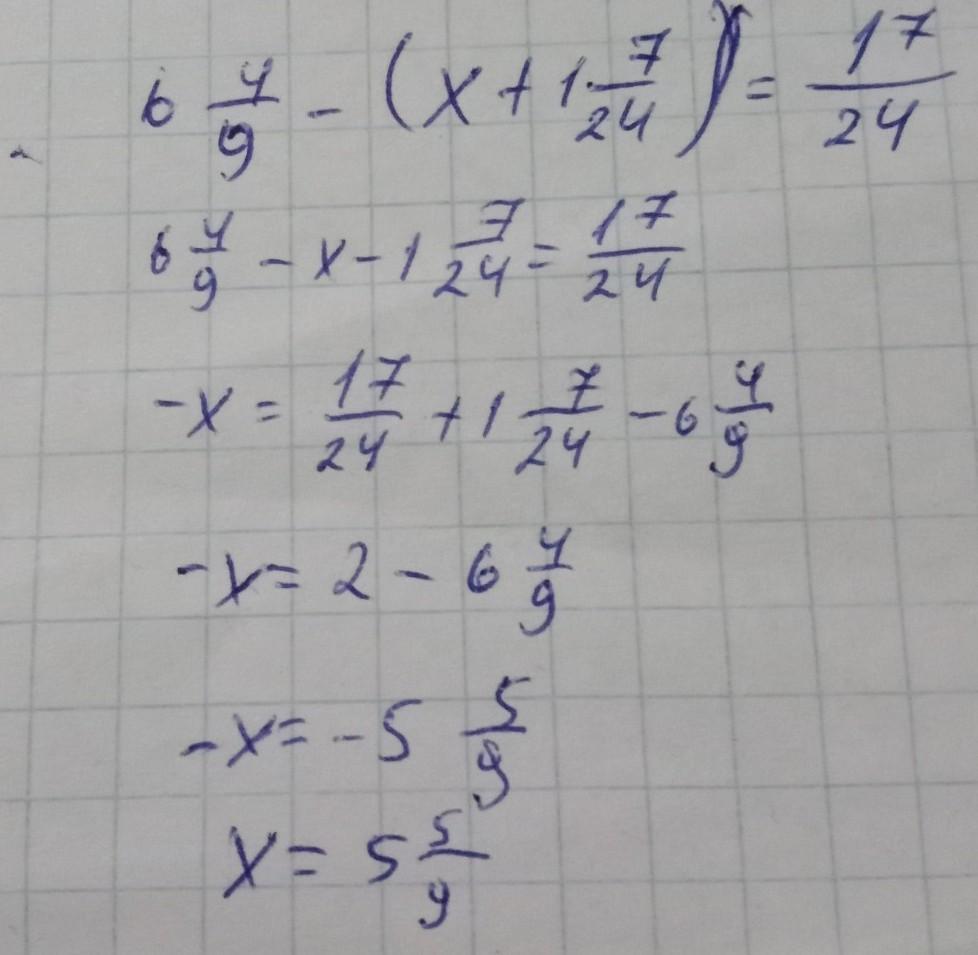 6 4/9 - (x + 1 7/24) = 17/24
6 4/9 - x - 1 7/24 = 17/24
-x = 17/24 + 1 7/24 - 6 4/9
-x = 2 - 6 4/9
-x = -5 5/9
x = 5 5/9